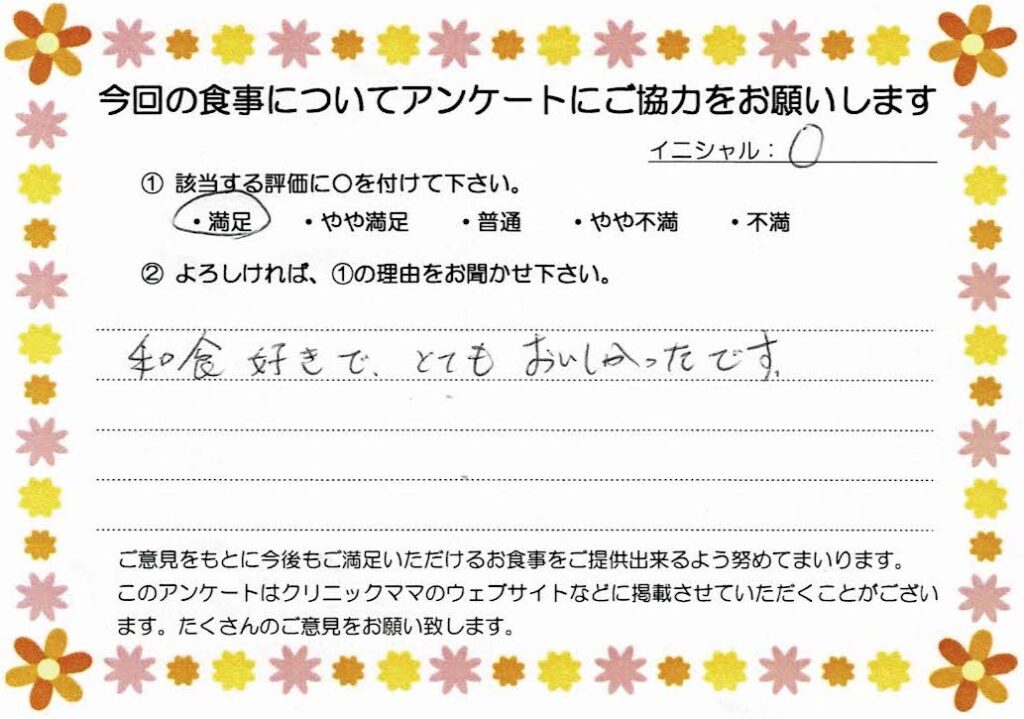 今回の食事についてアンケートにご協力をお願いします
イニシャル： O
① 該当する評価に〇を付けて下さい。
・満足 ・やや満足 ・普通 ・やや不満 ・不満
② よろしければ、①の理由をお聞かせ下さい。
和食 好きで、とても おいしかったです。
ご意見をもとに今後もご満足いただけるお食事をご提供出来るよう努めてまいります。
このアンケートはクリニックママのウェブサイトなどに掲載させていただくことがござい
ます。たくさんのご意見をお願い致します。